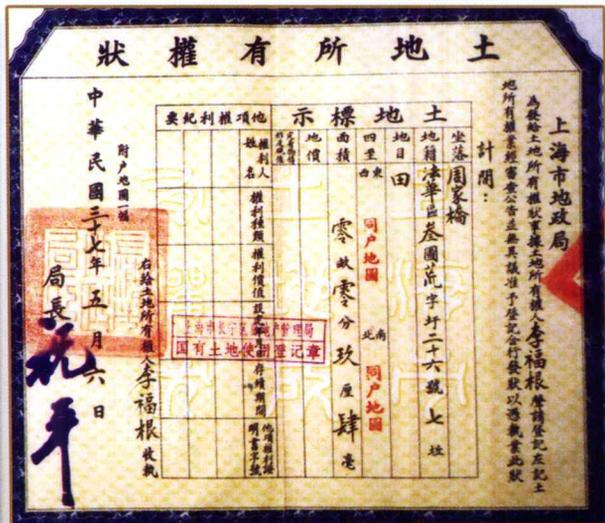 土地所有權狀
上海市地政局
為發給土地所有權狀事據土地所有權人李福根聲請登記左記土
地所有權業經審查公告並無異議准予登記合行發狀以憑執業此狀
計開：
土地標示
坐落 周家橋
地籍 法華區叁圖荒字圩二十六號七坵
地目 田
四至 東西 同户地圖 南北 同户地圖
面積 零畝零分玖厘肆毫
地價
他項權利紀要
權利人姓名
權利種類
權利價值
存續期間
他項權利證明書字號
國有土地使用登記章
右給土地所有權人李福根收執
附户地圖一幅
中華民國三十七年五月六日
局長
祝平